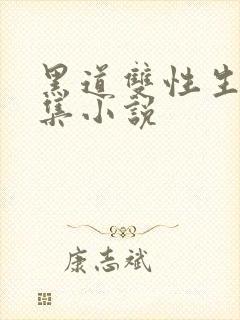 黑道雙性生
集小說
康志斌